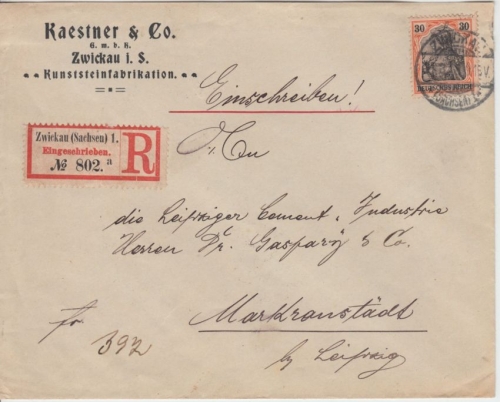 Kaestner & Co.
G. m. b. H.
Zwickau i. S.
Kunststeinfabrikation.
30 30
DEUTSCHES REICH
Einschreiben!
Zwickau (Sachsen) 1.
Eingeschrieben.
№ 802. a
R
An
die Leipziger Cement-Industrie
Herren Dr. Gaspary & Co.
Markranstädt
by Leipzig
fr
392